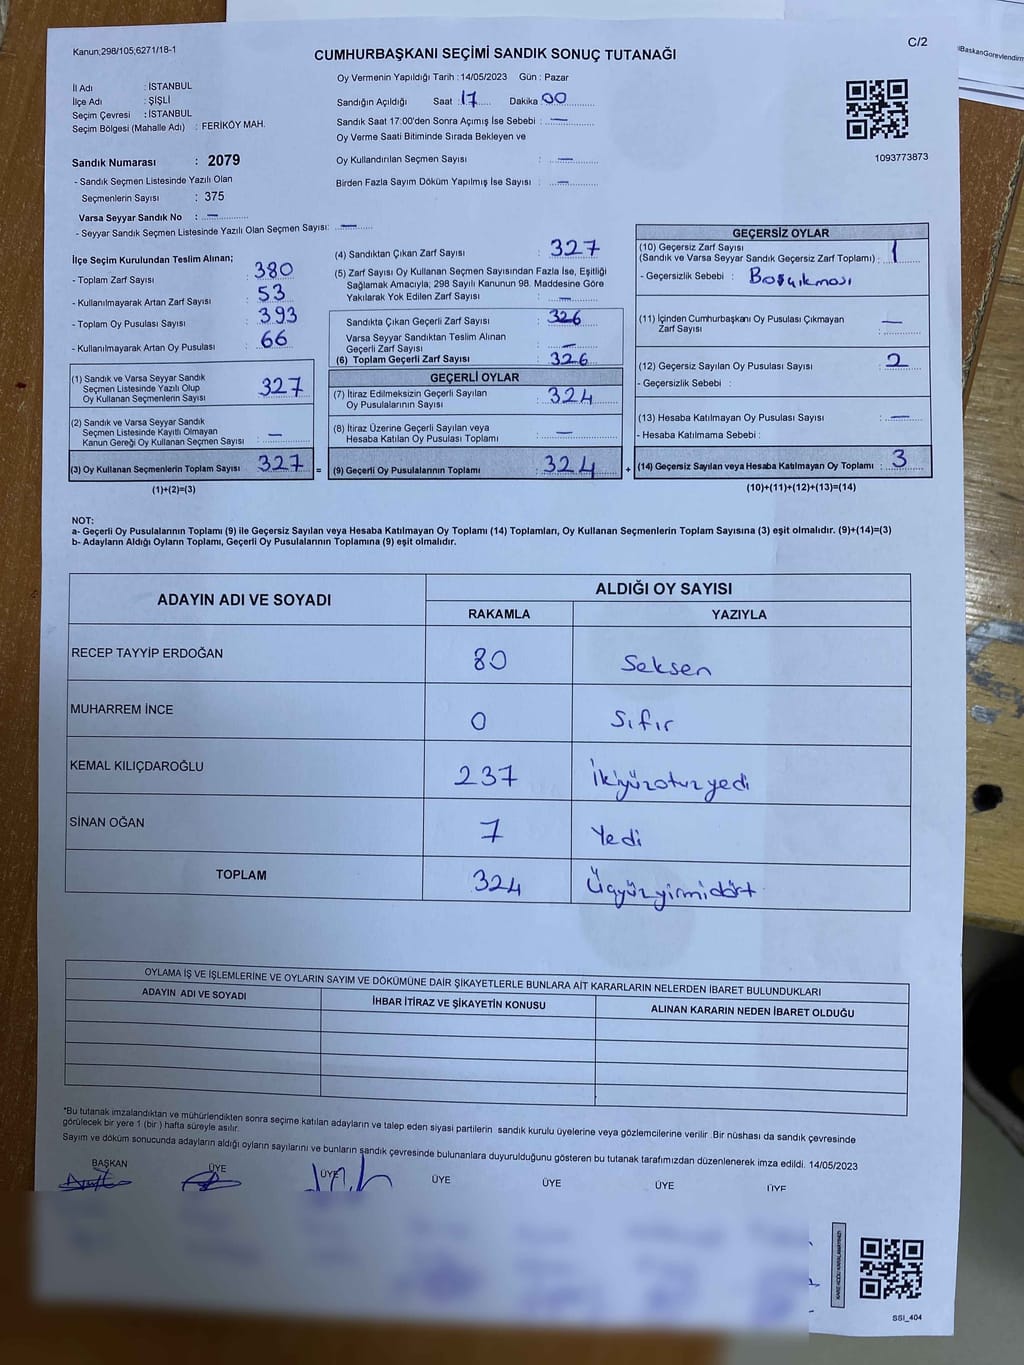 Kanun;298/105,6271/18-1
C/2
CUMHURBAŞKANI SEÇİMİ SANDIK SONUÇ TUTANAĞI
İl Adı : İSTANBUL
İlçe Adı : ŞİŞLİ
Seçim Çevresi : İSTANBUL
Seçim Bölgesi (Mahalle Adı) : FERİKÖY MAH.
Sandık Numarası : 2079
- Sandık Seçmen Listesinde Yazılı Olan
Seçmenlerin Sayısı : 375
Varsa Seyyar Sandık No : —
- Seyyar Sandık Seçmen Listesinde Yazılı Olan Seçmen Sayısı: —
Oy Vermenin Yapıldığı Tarih : 14/05/2023 Gün : Pazar
Sandığın Açıldığı Saat : 17 Dakika 00
Sandık Saat 17:00'den Sonra Açımış İse Sebebi : —
Oy Verme Saati Bitiminde Sırada Bekleyen ve
Oy Kullandırılan Seçmen Sayısı : —
Birden Fazla Sayım Döküm Yapılmış İse Sayısı : —
1093773873
İlçe Seçim Kurulundan Teslim Alınan;
- Toplam Zarf Sayısı : 380
- Kullanılmayarak Artan Zarf Sayısı : 53
- Toplam Oy Pusulası Sayısı : 393
- Kullanılmayarak Artan Oy Pusulası : 66
(1) Sandık ve Varsa Seyyar Sandık
Seçmen Listesinde Yazılı Olup
Oy Kullanan Seçmenlerin Sayısı : 327
(2) Sandık ve Varsa Seyyar Sandık
Seçmen Listesinde Kayıtlı Olmayan
Kanun Gereği Oy Kullanan Seçmen Sayısı : —
(3) Oy Kullanan Seçmenlerin Toplam Sayısı : 327 =
(1)+(2)=(3)
(4) Sandıktan Çıkan Zarf Sayısı : 327
(5) Zarf Sayısı Oy Kullanan Seçmen Sayısından Fazla İse, Eşitliği
Sağlamak Amacıyla; 298 Sayılı Kanunun 98. Maddesine Göre
Yakılarak Yok Edilen Zarf Sayısı : —
Sandıkta Çıkan Geçerli Zarf Sayısı : 326
Varsa Seyyar Sandıktan Teslim Alınan
Geçerli Zarf Sayısı : —
(6) Toplam Geçerli Zarf Sayısı : 326
GEÇERLİ OYLAR
(7) İtiraz Edilmeksizin Geçerli Sayılan
Oy Pusulalarının Sayısı : 324
(8) İtiraz Üzerine Geçerli Sayılan veya
Hesaba Katılan Oy Pusulası Toplamı : —
(9) Geçerli Oy Pusulalarının Toplamı : 324 +
GEÇERSİZ OYLAR
(10) Geçersiz Zarf Sayısı
(Sandık ve Varsa Seyyar Sandık Geçersiz Zarf Toplamı) : 1
- Geçersizlik Sebebi : Boş çıkması
(11) İçinden Cumhurbaşkanı Oy Pusulası Çıkmayan
Zarf Sayısı : —
(12) Geçersiz Sayılan Oy Pusulası Sayısı : 2
- Geçersizlik Sebebi :
(13) Hesaba Katılmayan Oy Pusulası Sayısı : —
- Hesaba Katılmama Sebebi :
(14) Geçersiz Sayılan veya Hesaba Katılmayan Oy Toplamı : 3
(10)+(11)+(12)+(13)=(14)
NOT:
a- Geçerli Oy Pusulalarının Toplamı (9) ile Geçersiz Sayılan veya Hesaba Katılmayan Oy Toplamı (14) Toplamları, Oy Kullanan Seçmenlerin Toplam Sayısına (3) eşit olmalıdır. (9)+(14)=(3)
b- Adayların Aldığı Oyların Toplamı, Geçerli Oy Pusulalarının Toplamına (9) eşit olmalıdır.
ADAYIN ADI VE SOYADI
ALDIĞI OY SAYISI
RAKAMLA YAZIYLA
RECEP TAYYİP ERDOĞAN 80 Seksen
MUHARREM İNCE 0 Sıfır
KEMAL KILIÇDAROĞLU 237 İkiyüzotuzyedi
SİNAN OĞAN 7 Yedi
TOPLAM 324 Üçyüzyirmidört
OYLAMA İŞ VE İŞLEMLERİNE VE OYLARIN SAYIM VE DÖKÜMÜNE DAİR ŞİKAYETLERLE BUNLARA AİT KARARLARIN NELERDEN İBARET BULUNDUKLARI
ADAYIN ADI VE SOYADI İHBAR İTİRAZ VE ŞİKAYETİN KONUSU ALINAN KARARIN NEDEN İBARET OLDUĞU
*Bu tutanak imzalandıktan ve mühürlendikten sonra seçime katılan adayların ve talep eden siyasi partilerin sandık kurulu üyelerine veya gözlemcilerine verilir .Bir nüshası da sandık çevresinde
görülecek bir yere 1 (bir ) hafta süreyle asılır.
Sayım ve döküm sonucunda adayların aldığı oyların sayılarını ve bunların sandık çevresinde bulunanlara duyurulduğunu gösteren bu tutanak tarafımızdan düzenlenerek imza edildi. 14/05/2023
BAŞKAN ÜYE ÜYE ÜYE ÜYE ÜYE ÜYE
SSI_404